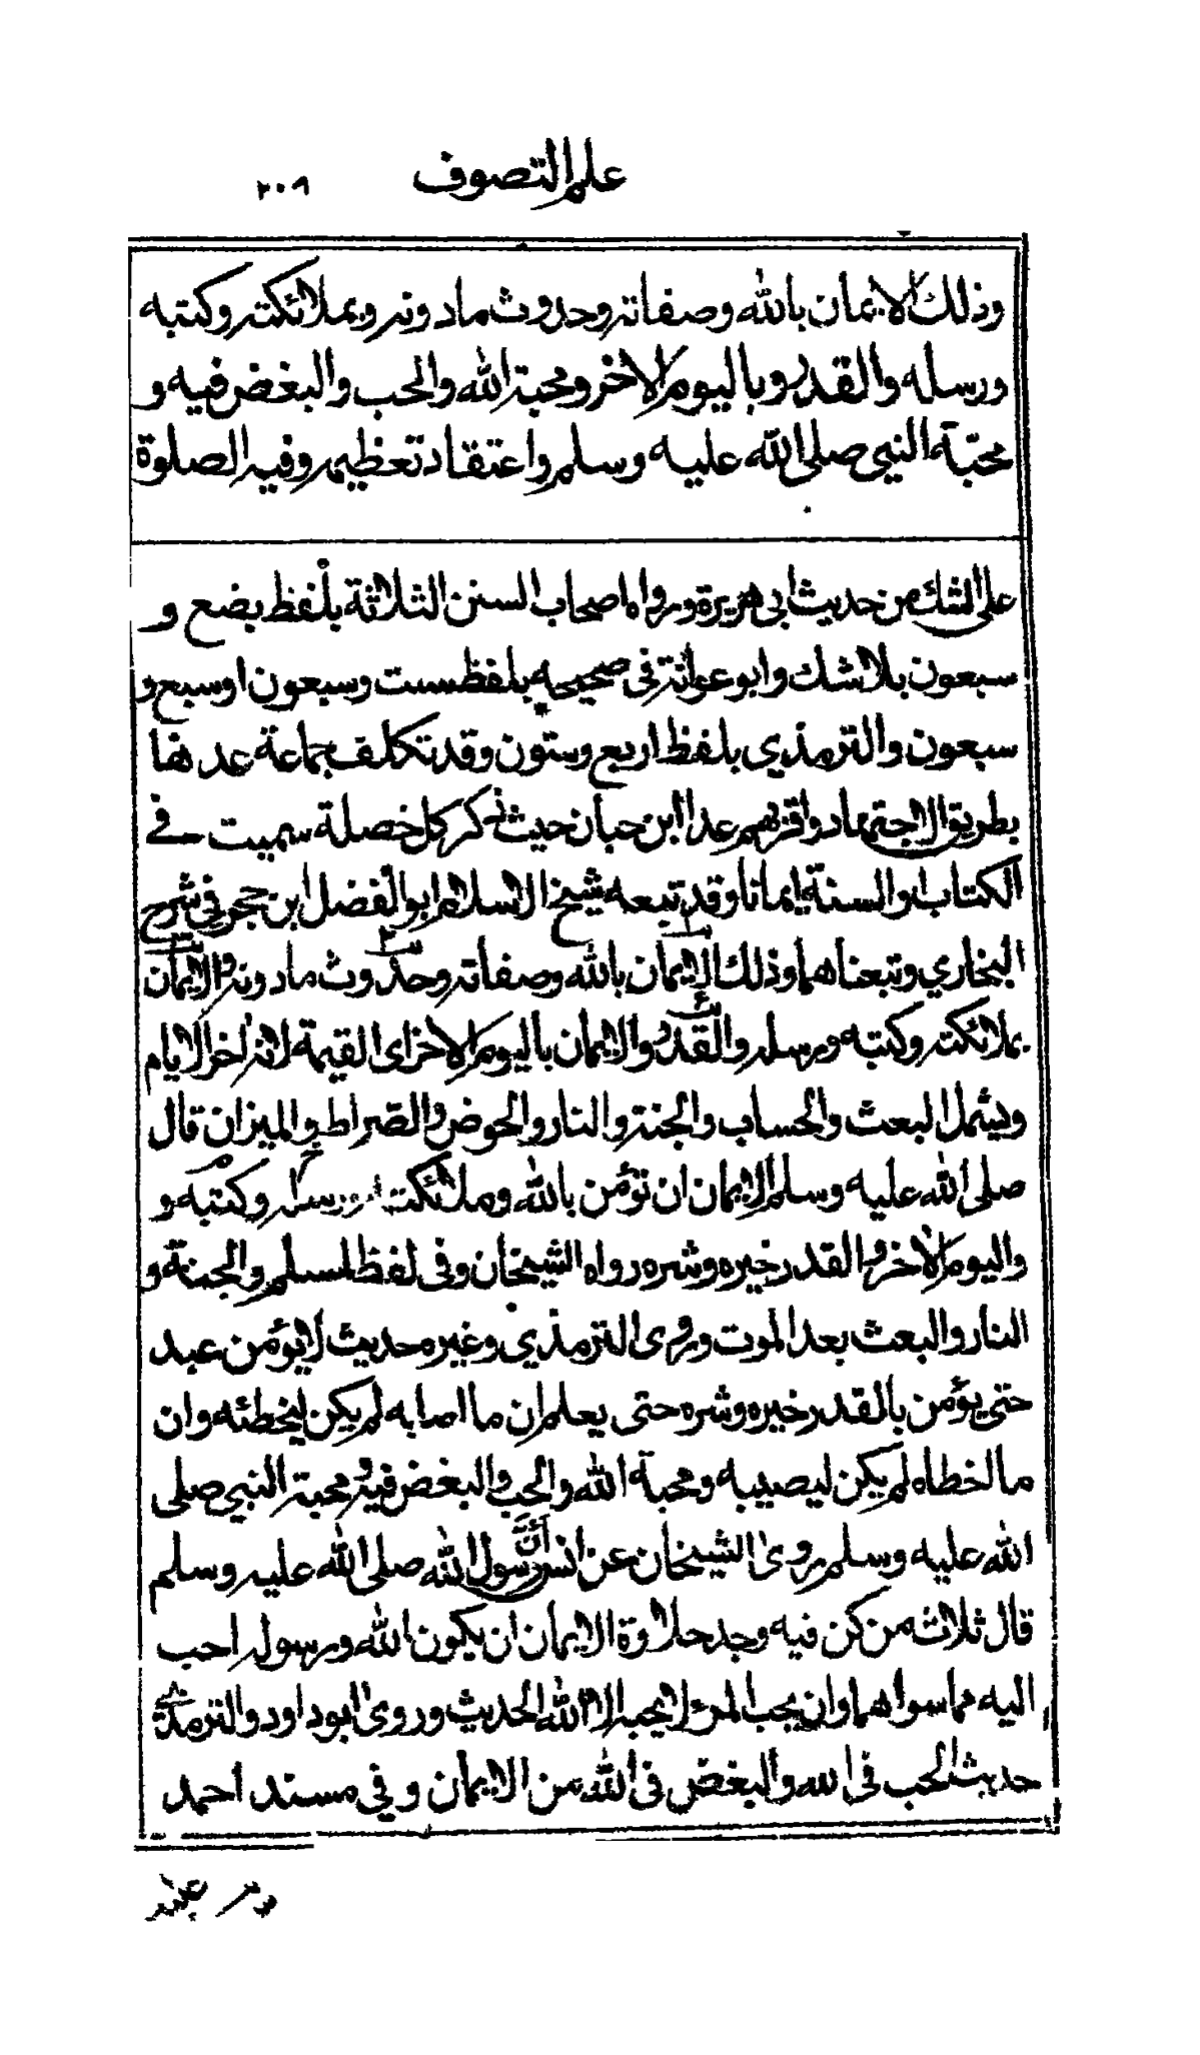 علم التصوف ٢٠٩
وذلك الايمان بالله وصفاته وحدوث مادونه وبملائكته وكتبه
ورسله والقدر وباليوم الاخر ومحبة الله والحب والبغض فيه و
محبّة النبي صلى الله عليه وسلم واعتقاد تعظيمه وفيه الصلوة
على الشك من حديث ابى هريرة ورواه اصحاب السنن الثلاثة بلفظ بضع و
سبعون بلا شك وابو عوانة فى صحيحه بلفظ ست وسبعون او سبع و
سبعون والترمذي بلفظ اربع وستون وقد تكلف جماعة عدها
بطريق الاجتهاد واقربهم عدا ابن حبان حيث ذكر كل خصلة سميت في
الكتاب او السنة ايمانا وقد تبعه شيخ الاسلام ابو الفضل ابن حجر في شرح
البخاري وتبعناهما وذلك الايمان بالله وصفاته وحدوث مادونه والايمان
بملائكته وكتبه ورسله والقدر والايمان باليوم الاخر اى القيمة لانه اخر الايام
ويشمل البعث والحساب والجنة والنار والحوض والصّراط والميزان قال
صلى الله عليه وسلم الايمان ان تؤمن بالله وملائكته ورسله وكتبه و
واليوم الاخر والقدر خيره وشره رواه الشيخان وفى لفظ لمسلم والجنة و
النار والبعث بعد الموت وروى الترمذي وغيره حديث لا يؤمن عبد
حتى يؤمن بالقدر خيره وشره حتى يعلم ان ما اصابه لم يكن ليخطئه وان
ما اخطاه لم يكن ليصيبه ومحبة الله والحب والبغض فيه ومحبة النبي صلى
الله عليه وسلم روى الشيخان عن انس أنّ رسول الله صلى الله عليه وسلم
قال ثلاث من كن فيه وجد حلاوة الايمان ان يكون الله ورسوله احب
اليه مما سواهما وان يحب المرء لا يحبه الا لله الحديث وروى ابو داود والترمذي
حديث الحب فى الله والبغض فى الله من الايمان وفي مسند احمد